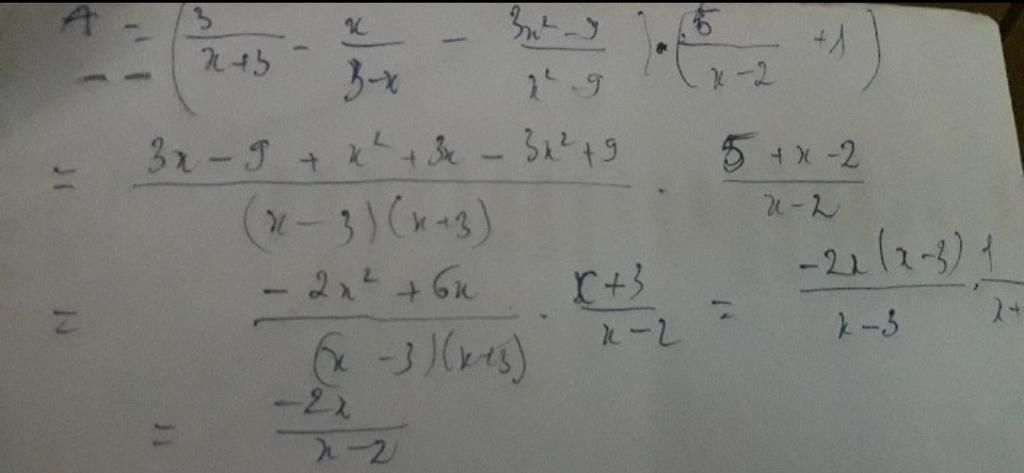 A = (3/(x+3) - x/(3-x) - (3x² - 9)/(x² - 9)) • (5/(x-2) + 1)
= (3x - 9 + x² + 3x - 3x² + 9)/((x - 3)(x+3)) . (5 + x - 2)/(x-2)
= (-2x² + 6x)/((x - 3)(x+3)) . (x+3)/(x-2) = (-2x(x-3))/(x-3) .
= (-2x)/(x-2)